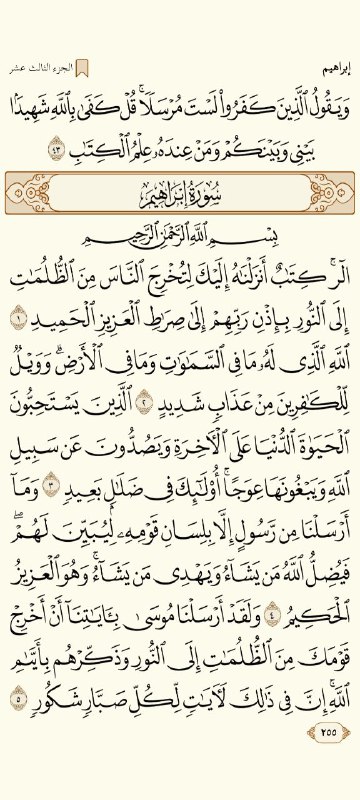 إبراهيم
الجزء الثالث عشر
وَيَقُولُ ٱلَّذِينَ كَفَرُواْ لَسۡتَ مُرۡسَلٗاۚ قُلۡ كَفَىٰ بِٱللَّهِ شَهِيدَۢا
بَيۡنِي وَبَيۡنَكُمۡ وَمَنۡ عِندَهُۥ عِلۡمُ ٱلۡكِتَٰبِ ٤٣
سُورَةُ إِبۡرَاهِيمَ
بِسۡمِ ٱللَّهِ ٱلرَّحۡمَٰنِ ٱلرَّحِيمِ
الٓرۚ كِتَٰبٌ أَنزَلۡنَٰهُ إِلَيۡكَ لِتُخۡرِجَ ٱلنَّاسَ مِنَ ٱلظُّلُمَٰتِ
إِلَى ٱلنُّورِ بِإِذۡنِ رَبِّهِمۡ إِلَىٰ صِرَٰطِ ٱلۡعَزِيزِ ٱلۡحَمِيدِ ١
ٱللَّهِ ٱلَّذِي لَهُۥ مَا فِي ٱلسَّمَٰوَٰتِ وَمَا فِي ٱلۡأَرۡضِۗ وَوَيۡلٞ
لِّلۡكَٰفِرِينَ مِنۡ عَذَابٖ شَدِيدٍ ٢ ٱلَّذِينَ يَسۡتَحِبُّونَ
ٱلۡحَيَوٰةَ ٱلدُّنۡيَا عَلَى ٱلۡأٓخِرَةِ وَيَصُدُّونَ عَن سَبِيلِ
ٱللَّهِ وَيَبۡغُونَهَا عِوَجًاۚ أُوْلَٰٓئِكَ فِي ضَلَٰلِۭ بَعِيدٖ ٣ وَمَآ
أَرۡسَلۡنَا مِن رَّسُولٍ إِلَّا بِلِسَانِ قَوۡمِهِۦ لِيُبَيِّنَ لَهُمۡۖ
فَيُضِلُّ ٱللَّهُ مَن يَشَآءُ وَيَهۡدِي مَن يَشَآءُۚ وَهُوَ ٱلۡعَزِيزُ
ٱلۡحَكِيمُ ٤ وَلَقَدۡ أَرۡسَلۡنَا مُوسَىٰ بِـَٔايَٰتِنَآ أَنۡ أَخۡرِجۡ
قَوۡمَكَ مِنَ ٱلظُّلُمَٰتِ إِلَى ٱلنُّورِ وَذَكِّرۡهُم بِأَيَّىٰمِ
ٱللَّهِۚ إِنَّ فِي ذَٰلِكَ لَأٓيَٰتٖ لِّكُلِّ صَبَّارٖ شَكُورٖ ٥
٢٥٥